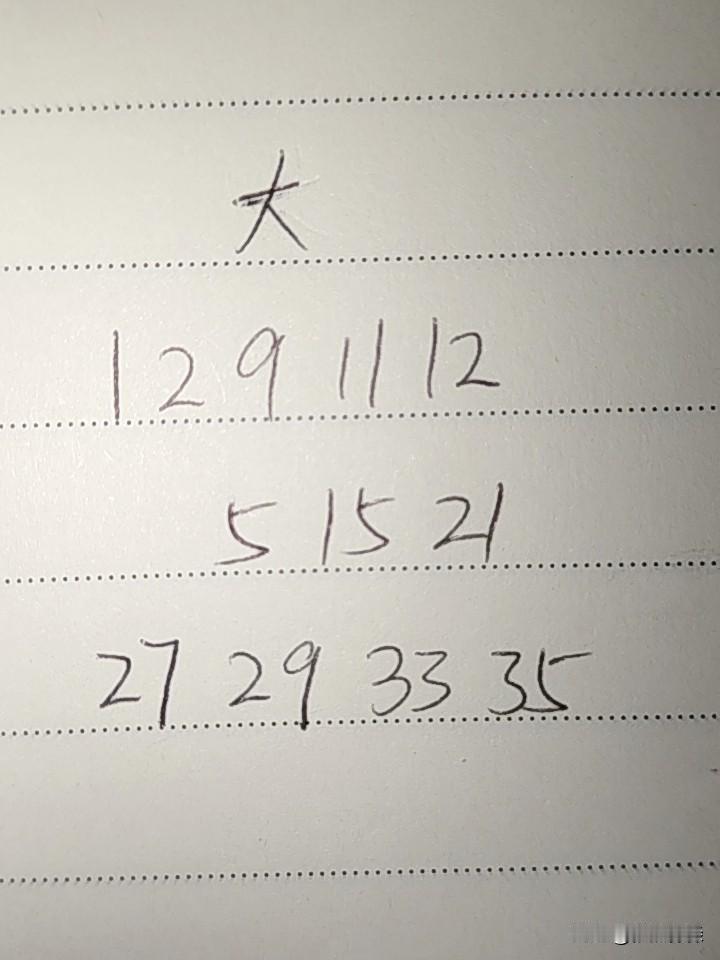 大
1 2 9 11 12
5 15 21
27 29 33 35